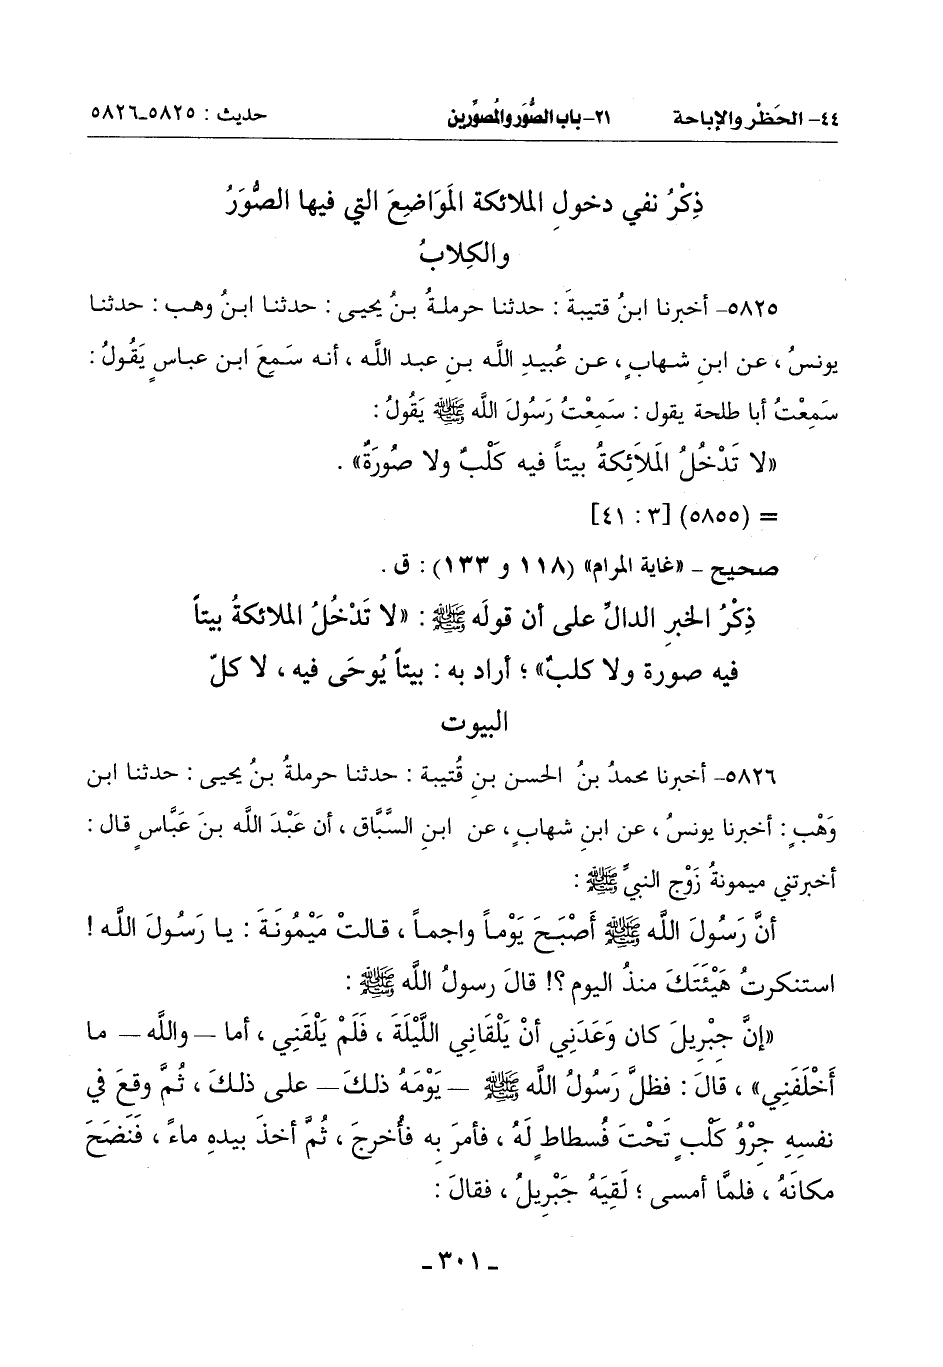 ٤٤- الحَظْر والإباحة ٢١-باب الصُّوَر والمُصوِّرين حديث : ٥٨٢٥-٥٨٢٦
ذِكْرُ نفي دخولِ الملائكة المَوَاضِعَ التي فيها الصُّوَرُ
والكِلابُ
٥٨٢٥- أخبرنا ابنُ قتيبةَ : حدثنا حرملةُ بنُ يحيى : حدثنا ابنُ وهب : حدثنا
يونسُ ، عن ابنِ شهابٍ ، عن عُبيدِ اللَّه بنِ عبد اللَّه ، أنه سَمِعَ ابن عباسٍ يَقُولُ :
سَمِعْتُ أبا طلحة يقول : سَمِعْتُ رَسُولَ اللَّه ﷺ يَقُولُ :
«لا تَدْخُلُ المَلَائِكةُ بيتاً فيه كَلْبٌ ولا صُورَةٌ» .
= (٥٨٥٥) [٣ : ٤١]
صحيح - «غاية المرام» (١١٨ و ١٣٣) : ق .
ذِكْرُ الخبرِ الدالِّ على أن قولَه ﷺ : «لا تَدْخُلُ الملائكةُ بيتاً
فيه صورة ولا كلبٌ» ؛ أراد به : بيتاً يُوحَى فيه ، لا كلّ
البيوت
٥٨٢٦- أخبرنا محمدُ بنُ الحسن بنِ قُتيبة : حدثنا حرملةُ بنُ يحيى : حدثنا ابن
وَهْبٍ : أخبرنا يونسُ ، عن ابنِ شهابٍ ، عن ابنِ السَّبَّاق ، أن عَبْدَ اللَّه بنَ عَبَّاسٍ قال :
أخبرتني ميمونةُ زَوْج النبيِّ ﷺ :
أنَّ رَسُولَ اللَّه ﷺ أَصْبَحَ يَوْماً واجماً ، قالتْ مَيْمُونَةَ : يا رَسُولَ اللَّه !
استنكرتُ هَيْئَتَكَ منذُ اليوم ؟! قالَ رسولُ اللَّه ﷺ :
«إنَّ جِبْرِيلَ كان وَعَدَنِي أنْ يَلْقَانِي اللَّيْلَةَ ، فَلَمْ يَلْقَنِي ، أما -واللَّه- ما
أَخْلَفَنِي» ، قالَ : فظلَّ رَسُولُ اللَّه ﷺ -يَوْمَهُ ذلكَ- على ذلكَ ، ثُمَّ وقعَ في
نفسِهِ جِرْوُ كَلْبٍ تَحْتَ فُسطاطٍ لَهُ ، فأمرَ بِه فأُخرجَ ، ثُمَّ أخذَ بيدهِ ماءً ، فَنَضَحَ
مكانَهُ ، فلمَّا أمسى ؛ لَقِيَهُ جَبْرِيلُ ، فقالَ :
- ٣٠١ -